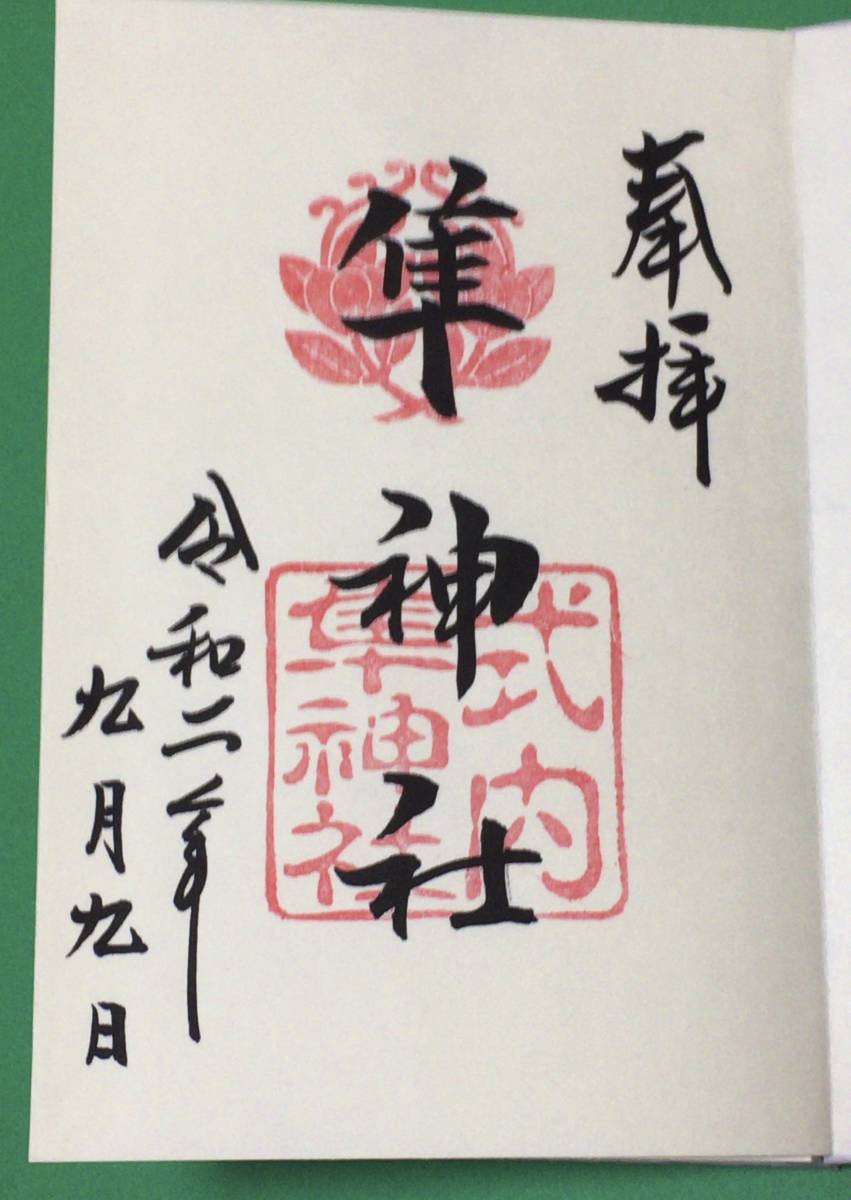 奉拝
隼神社
式内
隼神社
令和二年
九月九日